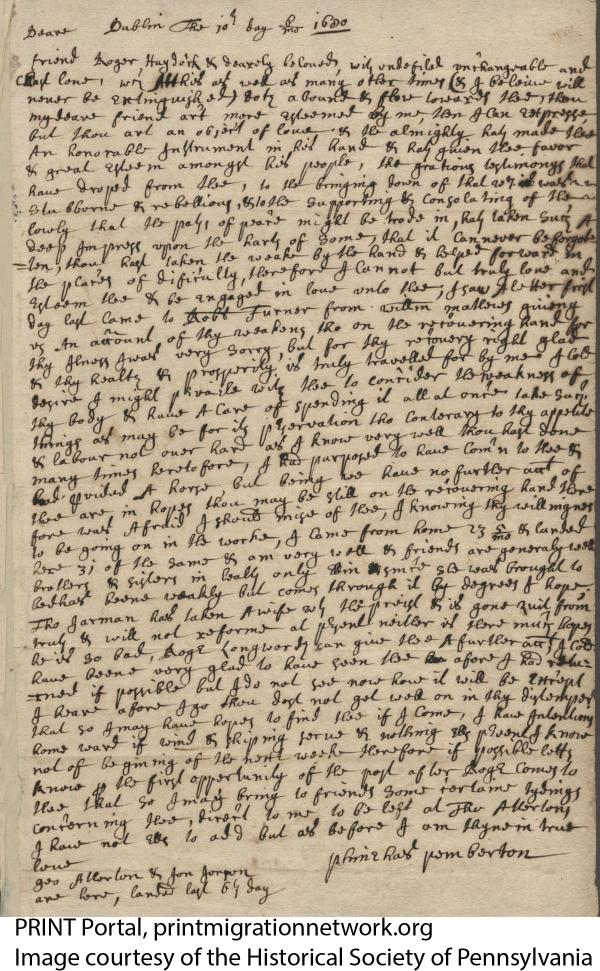 Deare Dublin The 10th day 6/mo 1680
friend Roger Haydock & dearely beloved, with undefiled unchangeable and
Chast love, wch Att this as well as many other times (& I beleive will
never be Extinguished) doth abound & flow towards thee, thou
my deare friend art more Esteemed by me, then I Can Expresse
but thou art an object of love & the almighty hath made thee
An honorable Instrument in his hand & hath given thee favor
& great Esteem amongst his people, the gratious testimonys that
have droped from thee, to the bringing down of that wch was
Stubborne & rebellious, & to the Supporting & Consolating of the
lowly that the paths of peace might be trode in, hath taken Such A
deep Impress upon the harts of Some, that it Can never be forgot=
=ten, thou hast taken the weake by the hand & helped forward in
the places of dificulty, therefore I Cannot but truly love and
Esteem thee & be Engaged in love unto thee, I saw A letter first
day last Came to Robt Turner from willm mathews giveing
us An account of thy weaknes tho on the recovering hand for
thy Ilness I was very Sorry but for thy recovery right glad
& thy health & prosperity is truly travelled for by me I Cold
desire I might prvaile with thee to Consider the weakness of
thy body & have A Care of Spending it all at once take Such
things as may be for its prservation tho Conterary to thy appetite
& labour not over hard as I know very well thou hast done
many times heretofore, I had purposed to have Com'n to thee &
had provided A horse but being we have no further acct of
thee are in hopes thou may be still on the recovering hand there
fore was Afraid I should mise of thee, I knowing thy willingness
to be going on in the worke, I Came from home 23 5/mo & landed
here 31 of the same & am very well & friends are generaly well
brothers & sisters in health only Smith she was brought to
bed has beene weakly but comes through it by degrees I hope
Tho Jarman has taken A wife wth the preist & is gone quit from
truth & will not reforme at prsent neither is there much hopes
he is so bad, Rogr Longworth can give thee A further acct I Cold
have beene very glad to have seen thee afore I had retur=
=ned if possible but I do not see now how it will be Except
I heare afore I go thou dost not get well on in thy distemper
that so I may have hopes to find thee if I Come, I have Intentions
home ward if wind & shiping serve & nothing Els prvent I know
not of begining of the next weeke therefore if possible lett
know the first oppertunity of the post after Rogr Comes to
thee that so I may bring to friends Some certaine tydings
Concerning thee, direct to me to be left at Tho Atkertons
I have not Els to add but as before I am thyne in true
love Phinehas Pemberton
geo Atterton & Jon
are here, landed last 6th day
PRINT Portal, printmigrationnetwork.org
Image courtesy of the Historical Society of Pennsylvania